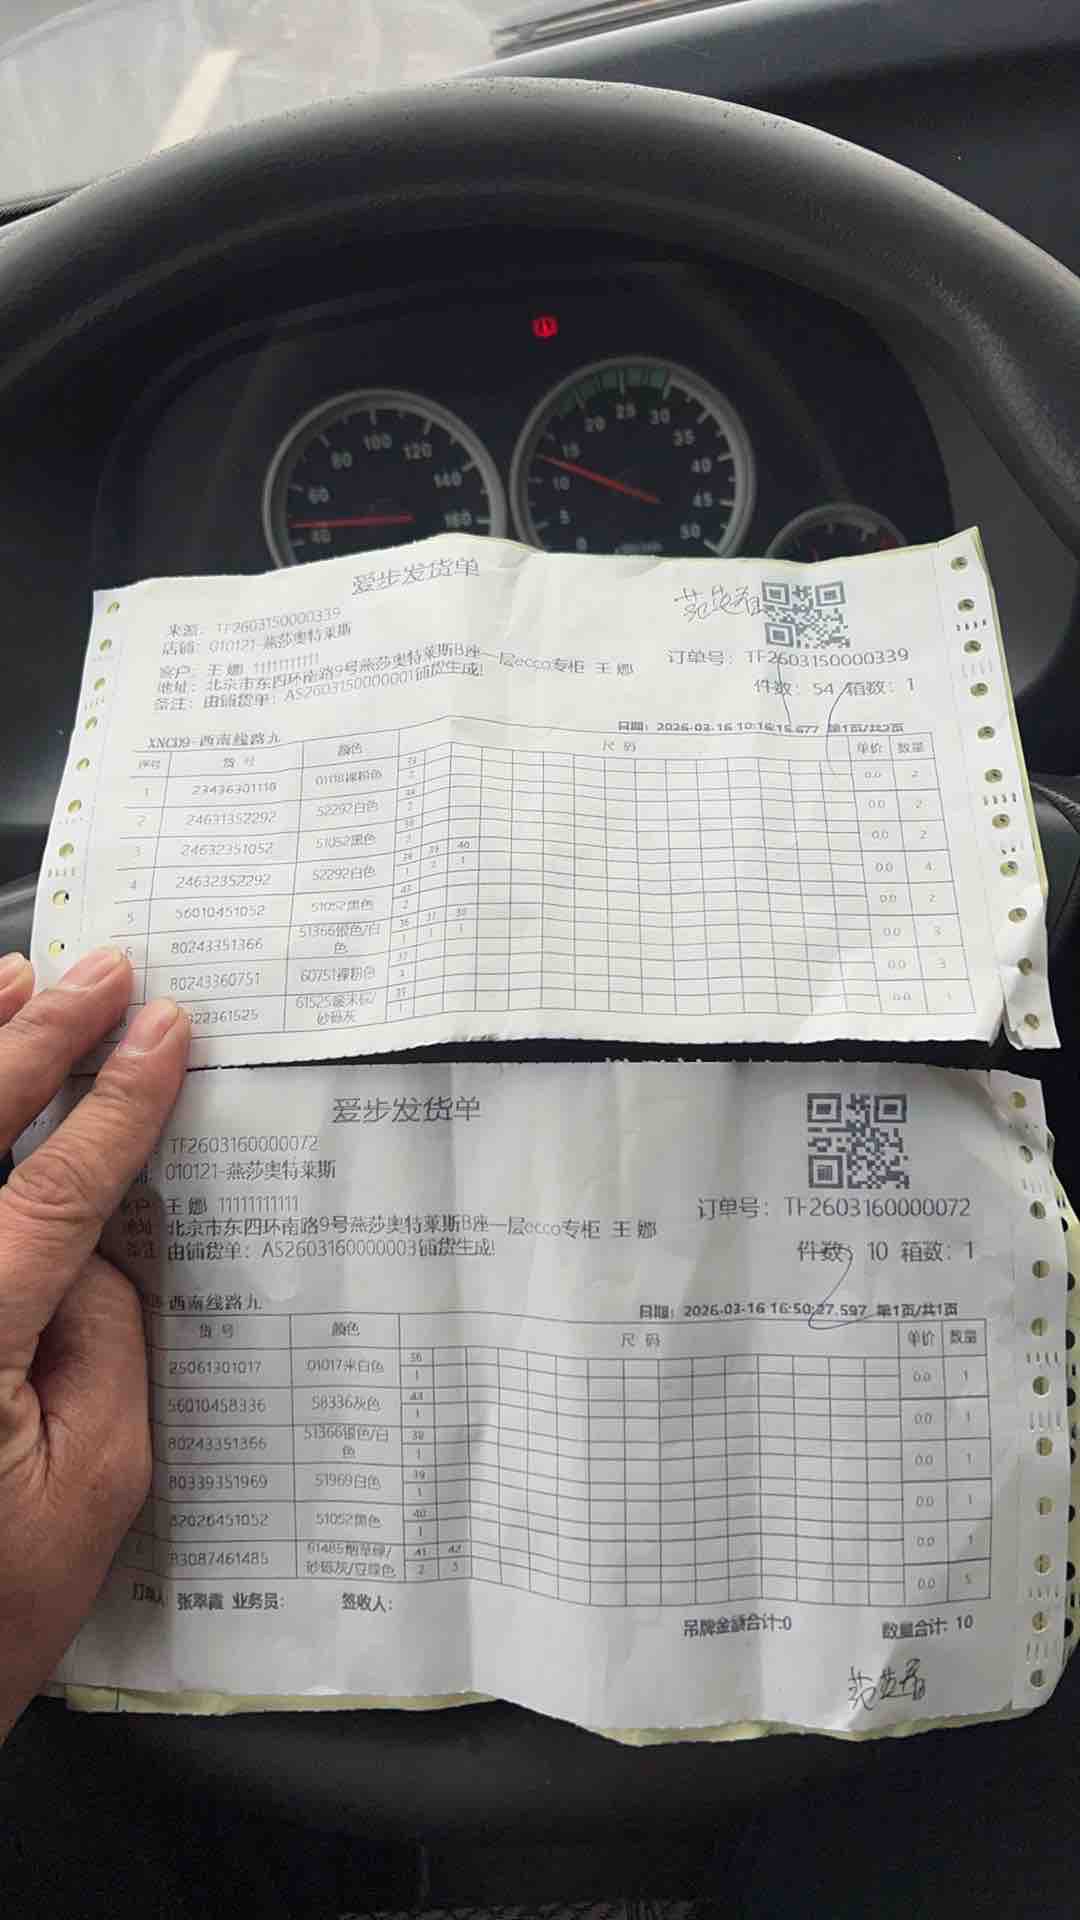 60
80
100
120
140
160
40
5
10
15
20
25
30
35
40
45
50
0
爱步发货单
来源：TF2603150000339
店铺：010121-燕莎奥特莱斯
客户：王 娜 11111111111
地址：北京市东四环南路9号燕莎奥特莱斯B座一层ecco专柜 王 娜
备注：由铺货单：AS2603150000001铺货生成!
订单号：TF2603150000339
件数：54 箱数：1
日期：2026-03-16 10:16:15.677 第1页/共2页
XNC09-西南线路九
序号 货 号 颜色 尺 码 单价 数量
1 23436301118 0118裸粉色 2 0.0 2
2 24631352292 52292白色 2 0.0 2
3 24632351052 51052黑色 2 0.0 2
4 24632352292 52292白色 38 39 40 1 2 1 0.0 4
5 56010451052 51052黑色 43 2 0.0 2
6 80243351366 51366银色/白色 36 37 38 1 1 1 0.0 3
80243360751 60751裸粉色 37 0.0 3
322361525 砂砾灰 1 0.0 1
爱步发货单
TF2603160000072
010121-燕莎奥特莱斯
客户：王 娜 11111111111
地址：北京市东四环南路9号燕莎奥特莱斯B座一层ecco专柜 王 娜
备注：由铺货单：AS2603160000003铺货生成!
订单号：TF2603160000072
件数：10 箱数：1
西南线路九
日期：2026-03-16 16:50:27.597 第1页/共1页
货 号 颜色 尺 码 单价 数量
25061301017 01017米白色 36 1 0.0 1
56010458336 58336灰色 43 1 0.0 1
80243351366 51366银色/白色 38 1 0.0 1
80339351969 51969白色 39 1 0.0 1
82026451052 51052黑色 40 1 0.0 1
83087461485 61485烟草绿/砂砾灰/豆绿色 41 42 2 3 0.0 5
打单人：张翠霞 业务员： 签收人：
吊牌金额合计:0
数量合计: 10